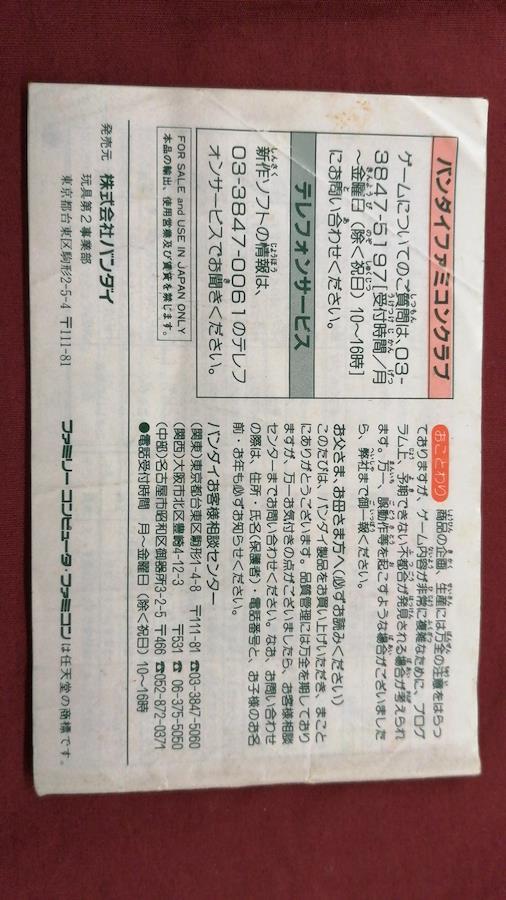 バンダイファミコンクラブ
ゲームについてのご質問は、03-
3847-5197[受付時間/月
~金曜日(除く祝日)10~16時]
にお問い合わせください。
テレフォンサービス
新作ソフトの情報は、
03-3847-0061のテレフ
ォンサービスでお聞きください。
FOR SALE and USE IN JAPAN ONLY
本品の輸出、使用営業及び賃貸を禁じます。
おことわり 商品の企画、生産には万全の注意をはらっ
てありますが、ゲーム内容が非常に複雑なために、プログ
ラム上、予期できない不都合が発見される場合が考えられ
ます。万一、誤動作等を起こすような場合がございました
ら、弊社まで御一報ください。
お父さま、お母さま方へ(必ずお読みください)
このたびは、バンダイ製品をお買い上げいただき、まこと
にありがとうございます。品質管理には万全を期しており
ますが、万一お気付きの点がございましたら、お客様相談
センターまでお問い合わせください。なお、お問い合わせ
の際は、住所・氏名(保護者)・電話番号と、お子様のお名
前・お年も必ずお知らせください。
バンダイお客様相談センター
(関東)東京都台東区駒形1-4-8 〒111-81 ☎03-3847-5060
(関西)大阪市北区豊崎4-12-3 〒531 ☎06-375-5050
(中部)名古屋市昭和区御器所3-2-5 〒466 ☎052-872-0371
●電話受付時間 月~金曜日(除く祝日)10~16時
発売元 株式会社バンダイ
玩具第2事業部
東京都台東区駒形2-5-4 〒111-81
ファミリーコンピュータ・ファミコンは任天堂の商標です。